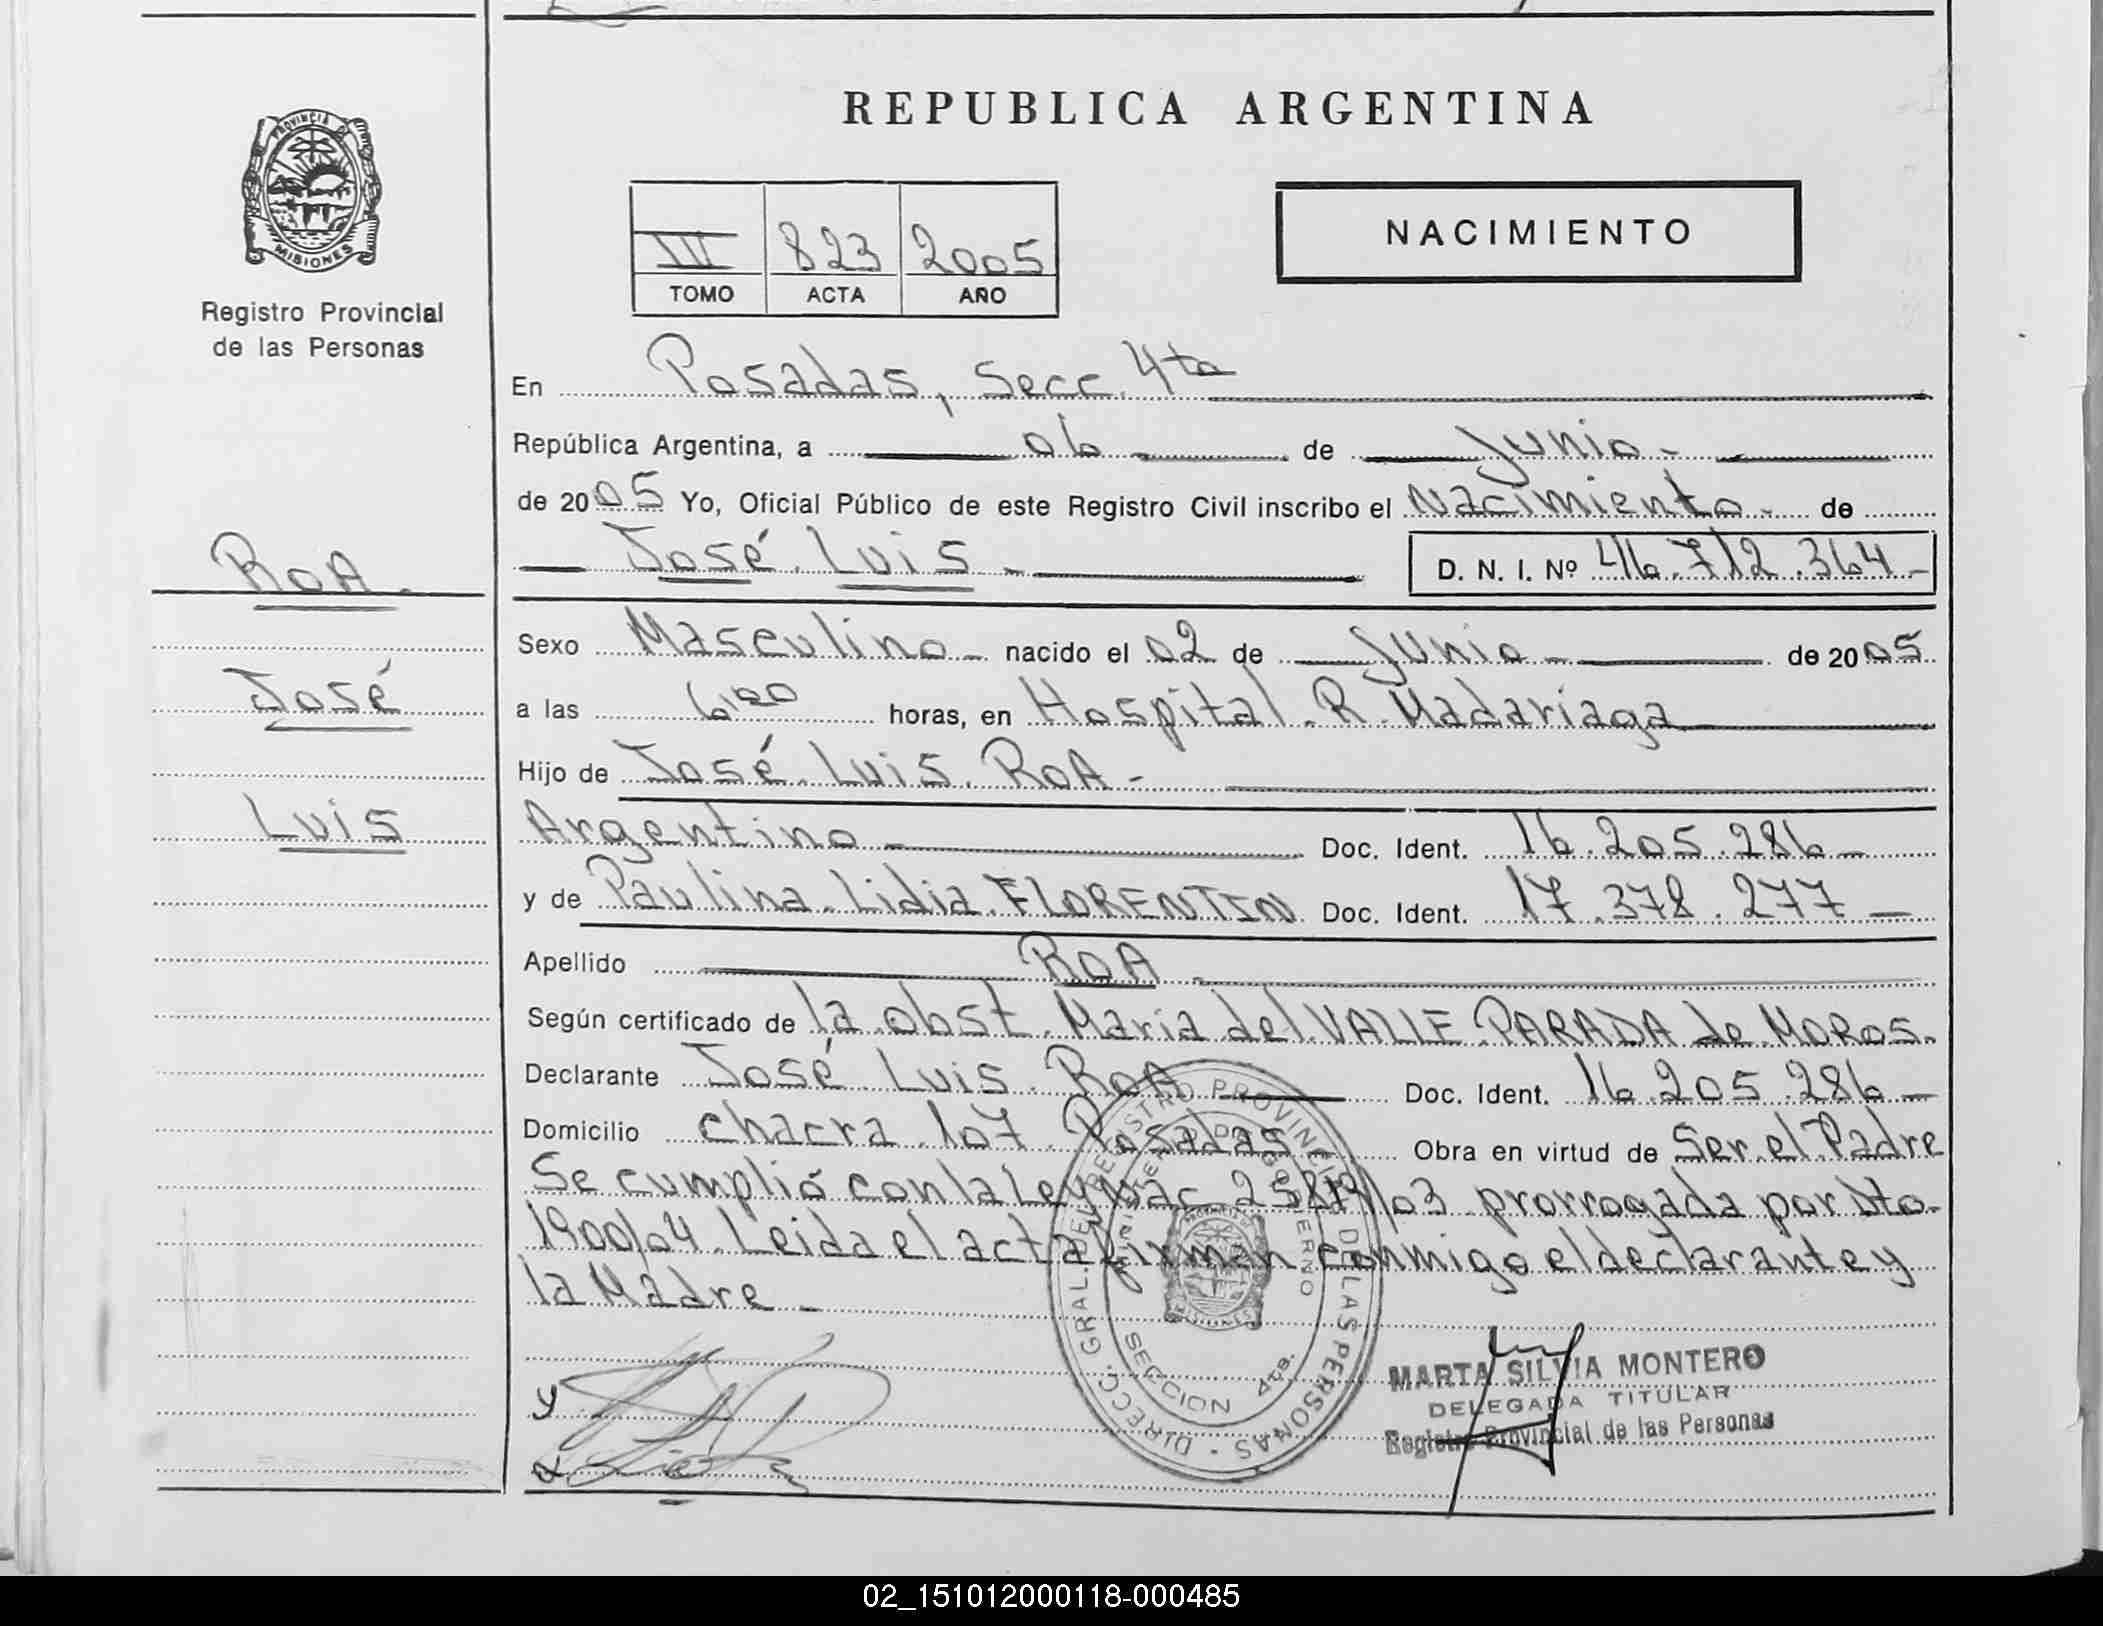 REPUBLICA ARGENTINA
PROVINCIA DE
MISIONES
Registro Provincial
de las Personas
III 823 2005
TOMO ACTA AÑO
NACIMIENTO
En Posadas, Secc. 4ta
República Argentina, a 06 de Junio.-
de 2005 Yo, Oficial Público de este Registro Civil inscribo el Nacimiento.- de
José Luis.- D. N. I. Nº 46.712.364-
ROA.
José
Luis
Sexo Masculino- nacido el 02 de Junio- de 2005
a las 6,00 horas, en Hospital R. Madariaga
Hijo de José Luis ROA-
Argentino- Doc. Ident. 16.205.286-
y de Paulina Lidia FLORENTIN Doc. Ident. 17.378.277-
Apellido ROA
Según certificado de la obst. Maria del VALLE PARADA de MOROS.
Declarante José Luis ROA Doc. Ident. 16.205.286-
Domicilio chacra 107 Posadas Obra en virtud de Ser el Padre
Se cumplió con la Ley Nac. 25819/03 prorrogada por Dto.
1900/04. Leida el acta firman conmigo el declarante y
la Madre-
DIRECC. GRAL. DEL REGISTRO PROVINCIAL DE LAS PERSONAS
MINISTERIO DE GOBIERNO
MISIONES
SECCION 4ta.
MARTA SILVIA MONTERO
DELEGADA TITULAR
Registro Provincial de las Personas
y
02_151012000118-000485